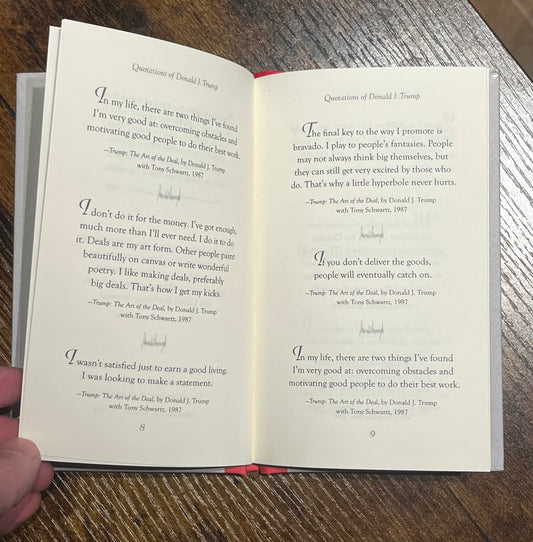 Quotations of Donald J. Trump
In my life, there are two things I've found
I'm very good at: overcoming obstacles and
motivating good people to do their best work.
—Trump: The Art of the Deal, by Donald J. Trump
with Tony Schwartz, 1987
I don't do it for the money. I've got enough,
much more than I'll ever need. I do it to do
it. Deals are my art form. Other people paint
beautifully on canvas or write wonderful
poetry. I like making deals, preferably
big deals. That's how I get my kicks.
—Trump: The Art of the Deal, by Donald J. Trump
with Tony Schwartz, 1987
I wasn't satisfied just to earn a good living.
I was looking to make a statement.
—Trump: The Art of the Deal, by Donald J. Trump
with Tony Schwartz, 1987
8
Quotations of Donald J. Trump
The final key to the way I promote is
bravado. I play to people's fantasies. People
may not always think big themselves, but
they can still get very excited by those who
do. That's why a little hyperbole never hurts.
—Trump: The Art of the Deal, by Donald J. Trump
with Tony Schwartz, 1987
If you don't deliver the goods,
people will eventually catch on.
—Trump: The Art of the Deal, by Donald J. Trump
with Tony Schwartz, 1987
In my life, there are two things I've found
I'm very good at: overcoming obstacles and
motivating good people to do their best work.
—Trump: The Art of the Deal, by Donald J. Trump
with Tony Schwartz, 1987
9